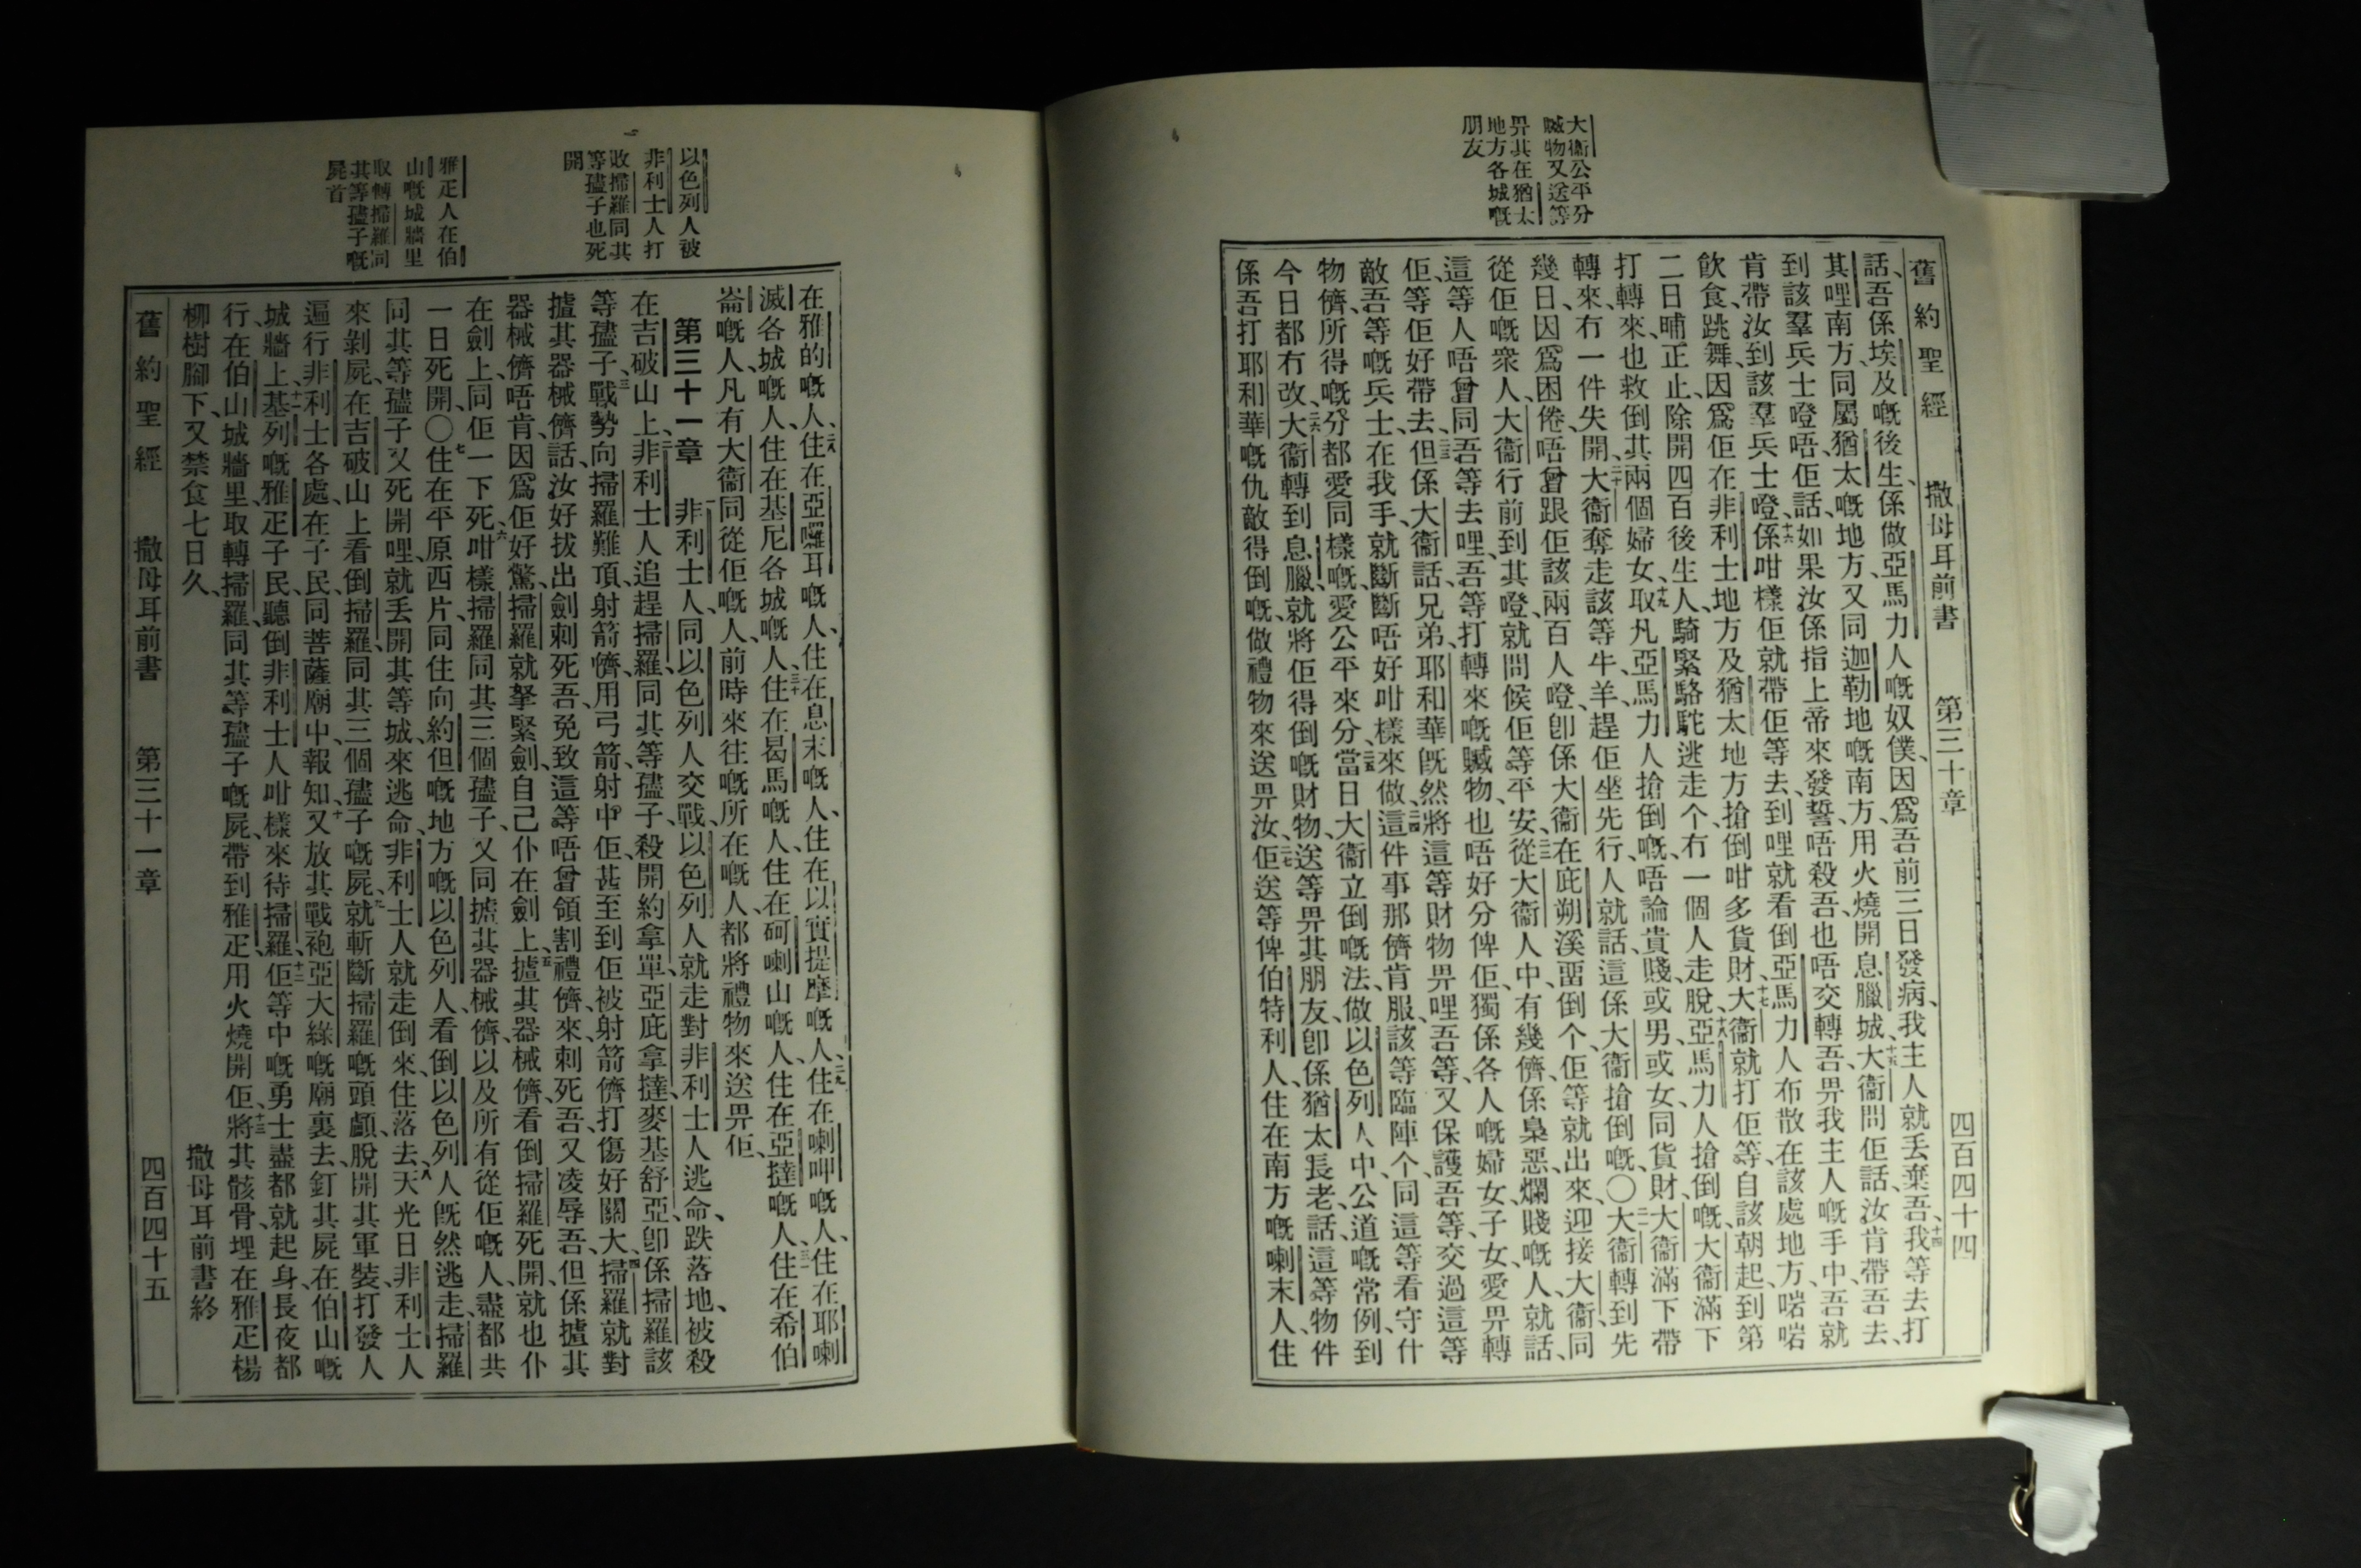 大衞公平分
贓物又送等
畀其在猶太
地方各城嘅
朋友
舊約聖經 撒母耳前書 第三十章 四百四十四
話、吾係埃及嘅後生、係做亞馬力人嘅奴僕、因爲吾前三日發病、我主人就丟棄吾、十四我等去打
其哩南方、同屬猶太嘅地方、又同迦勒地嘅南方、用火燒開息臘城、十五大衞問佢話、汝肯帶吾去、
到該羣兵士噔唔、佢話、如果汝係指上帝來發誓、唔殺吾、也唔交轉吾、畀我主人嘅手中、吾就
肯帶汝到該羣兵士噔、十六係咁樣佢就帶佢等去、到哩就看倒亞馬力人布散在該處地方、啱啱
飲食、跳舞、因爲佢在非利士地方及猶太地方搶倒咁多貨財、十七大衞就打佢等、自該朝起、到第
二日晡正止、除開四百後生人、騎緊駱駝逃走个、冇一個人走脫、十八亞馬力人搶倒嘅、大衞滿下
打轉來、也救倒其兩個婦女、十九取凡亞馬力人搶倒嘅、唔論貴賤、或男、或女、同貨財、大衞滿下帶
轉來、冇一件失開、二十大衞奪走該等牛、羊、趕佢坐先行、人就話、這係大衞搶倒嘅、〇二一大衞轉到先
幾日、因爲困倦、唔曾跟佢該兩百人噔、卽係大衞在庇朔溪畱倒个、佢等就出來、迎接大衞、同
從佢嘅衆人、大衞行前到其噔、就問候佢等平安、二二從大衞人中、有幾儕、係梟惡、爛賤嘅人、就話、
這等人唔曾同吾等去哩、吾等打轉來嘅贓物、也唔好分俾佢、獨係各人嘅婦女、子女、愛畀轉
佢、等佢好帶去、二三但係大衞話、兄弟、耶和華旣然將這等財物畀哩吾等、又保護吾等、交過這等
敵吾等嘅兵士、在我手、就斷斷唔好咁樣來做、二四這件事那儕肯服、該等臨陣个、同這等看守什
物儕、所得嘅分、都愛同樣嘅、愛公平來分、二五當日大衞立倒嘅法、做以色列人中、公道嘅常例、到
今日都冇改、二六大衞轉到息臘、就將佢得倒嘅財物、送等畀其朋友、卽係猶太長老、話、這等物件
係吾打耶和華嘅仇敵得倒嘅、做禮物來送畀汝、二七佢送等俾伯特利人、住在南方嘅喇末人、住
以色列人被
非利士人打
敗掃羅同其
等孻子也死
開
雅疋人在伯
山嘅城牆里
取轉掃羅同
其等孻子嘅
屍首
在雅的嘅人、二八住在亞囉耳嘅人、住在息末嘅人、住在以實提摩嘅人、二九住在喇呷嘅人、住在耶喇
滅各城嘅人、住在基尼各城嘅人、三十住在曷馬嘅人、住在砢喇山嘅人、住在亞撻嘅人、三一住在希伯
崙嘅人、凡有大衞同從佢嘅人、前時來往嘅所在嘅人、都將禮物來送畀佢、
第三十一章 一非利士人、同以色列人交戰、以色列人就走對非利士人逃命、跌落地、被殺
在吉破山上、二非利士人追趕掃羅、同其等孻子、殺開約拿單、亞庇拿撻、麥基舒亞、卽係掃羅該
等孻子、三戰勢向掃羅難頂、射箭儕、用弓箭射中佢、甚至到佢被射箭儕打傷好關大、四掃羅就對
攎其器械儕話、汝好拔出劍刺死吾、免致這等唔曾領割禮儕、來刺死吾、又凌辱吾、但係攎其
器械儕唔肯、因爲佢好驚、掃羅就拏緊劍、自己仆在劍上、五攎其器械儕看倒掃羅死開、就也仆
在劍上、同佢一下死、六咁樣掃羅同其三個孻子、又同攎其器械儕、以及所有從佢嘅人、盡都共
一日死開、〇七住在平原西片、同住向約但嘅地方嘅以色列人、看倒以色列人旣然逃走、掃羅
同其等孻子又死開哩、就丢開其等城、來逃命、非利士人就走倒來、住落去、八天光日非利士人
來剝屍、在吉破山上看倒掃羅同其三個孻子嘅屍、九就斬斷掃羅嘅頭顱、脫開其軍裝、打發人
遍行非利士各處、在子民、同菩薩廟中、報知、十又放其戰袍、亞大綠嘅廟裏去、釘其屍在伯山嘅
城牆上、十一基列嘅雅疋子民、聽倒非利士人咁樣來待掃羅、十二佢等中嘅勇士、盡都就起身、長夜都
行、在伯山城牆里、取轉掃羅同其等孻子嘅屍、帶到雅疋用火燒開佢、十三將其骸骨、埋在雅疋楊
柳樹腳下、又禁食七日久、
撒母耳前書終
舊約聖經 撒母耳前書 第三十一章 四百四十五